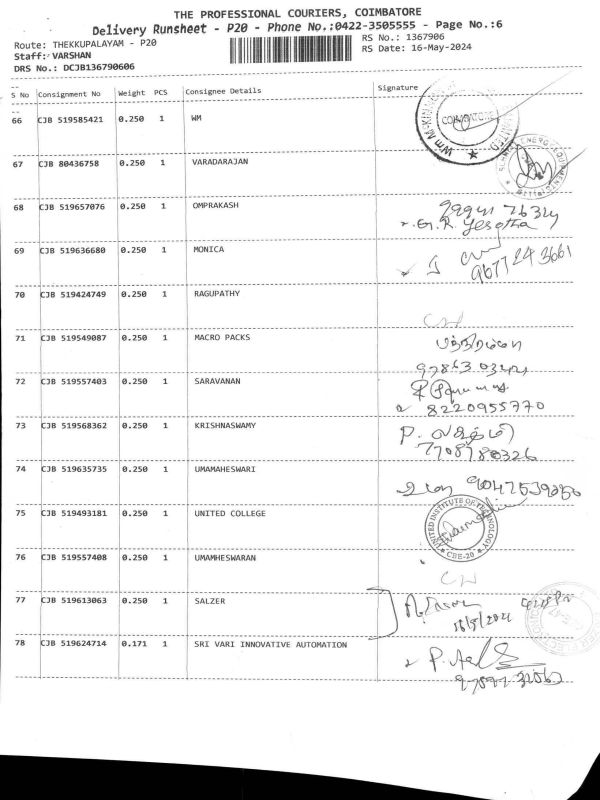 THE PROFESSIONAL COURIERS, COIMBATORE
Delivery Runsheet - P20 - Phone No.:0422-3505555 - Page No.:6
Route: THEKKUPALAYAM - P20
RS No.: 1367906
Staff: VARSHAN
RS Date: 16-May-2024
DRS No.: DCJB136790606
S No Consignment No Weight PCS Consignee Details Signature
66 CJB 519585421 0.250 1 WM
COIMBATORE
67 CJB 80436758 0.250 1 VARADARAJAN
68 CJB 519657076 0.250 1 OMPRAKASH
G.R. Yesotha
69 CJB 519636680 0.250 1 MONICA
9677243661
70 CJB 519424749 0.250 1 RAGUPATHY
71 CJB 519549087 0.250 1 MACRO PACKS
72 CJB 519557403 0.250 1 SARAVANAN
8220955770
73 CJB 519568362 0.250 1 KRISHNASWAMY
7708780326
74 CJB 519635735 0.250 1 UMAMAHESWARI
75 CJB 519493181 0.250 1 UNITED COLLEGE
UNITED INSTITUTE OF TECHNOLOGY
CBE-20
76 CJB 519557408 0.250 1 UMAMHESWARAN
77 CJB 519613063 0.250 1 SALZER
78 CJB 519624714 0.171 1 SRI VARI INNOVATIVE AUTOMATION